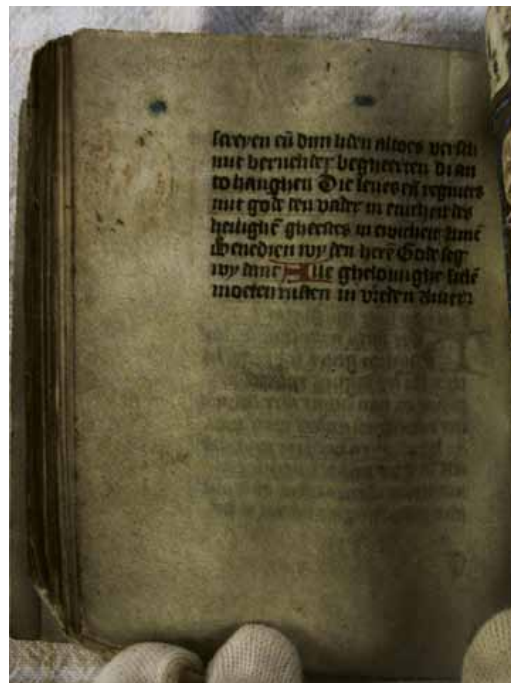 screyen en̄ dijn liden altoes versch
mit bernender begheerten di an
to hanghen Die leues en̄ regniers
mit gode den vader in enicheit des
heilighē gheestes in ewicheit Amē
Benedien wy den herē Gode seg
wy danc Alle ghelouighe sielē
moeten rusten in vreden Amen